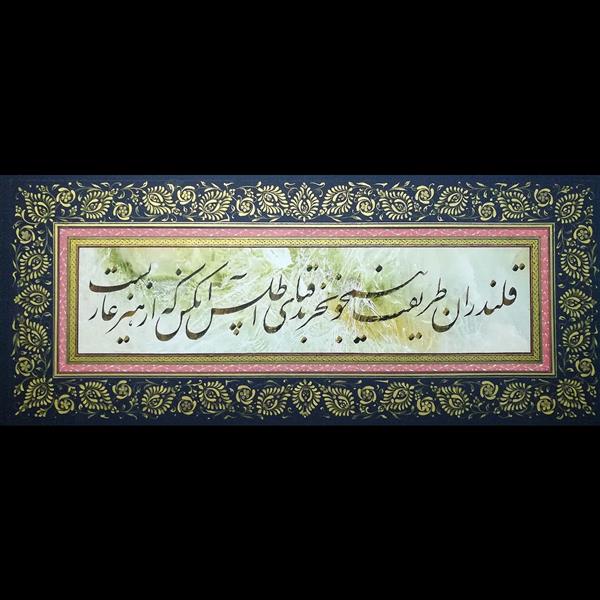 قلندران طریقت بنیم جو نخرند قبای اطلس آنکس که از هنر عاریست